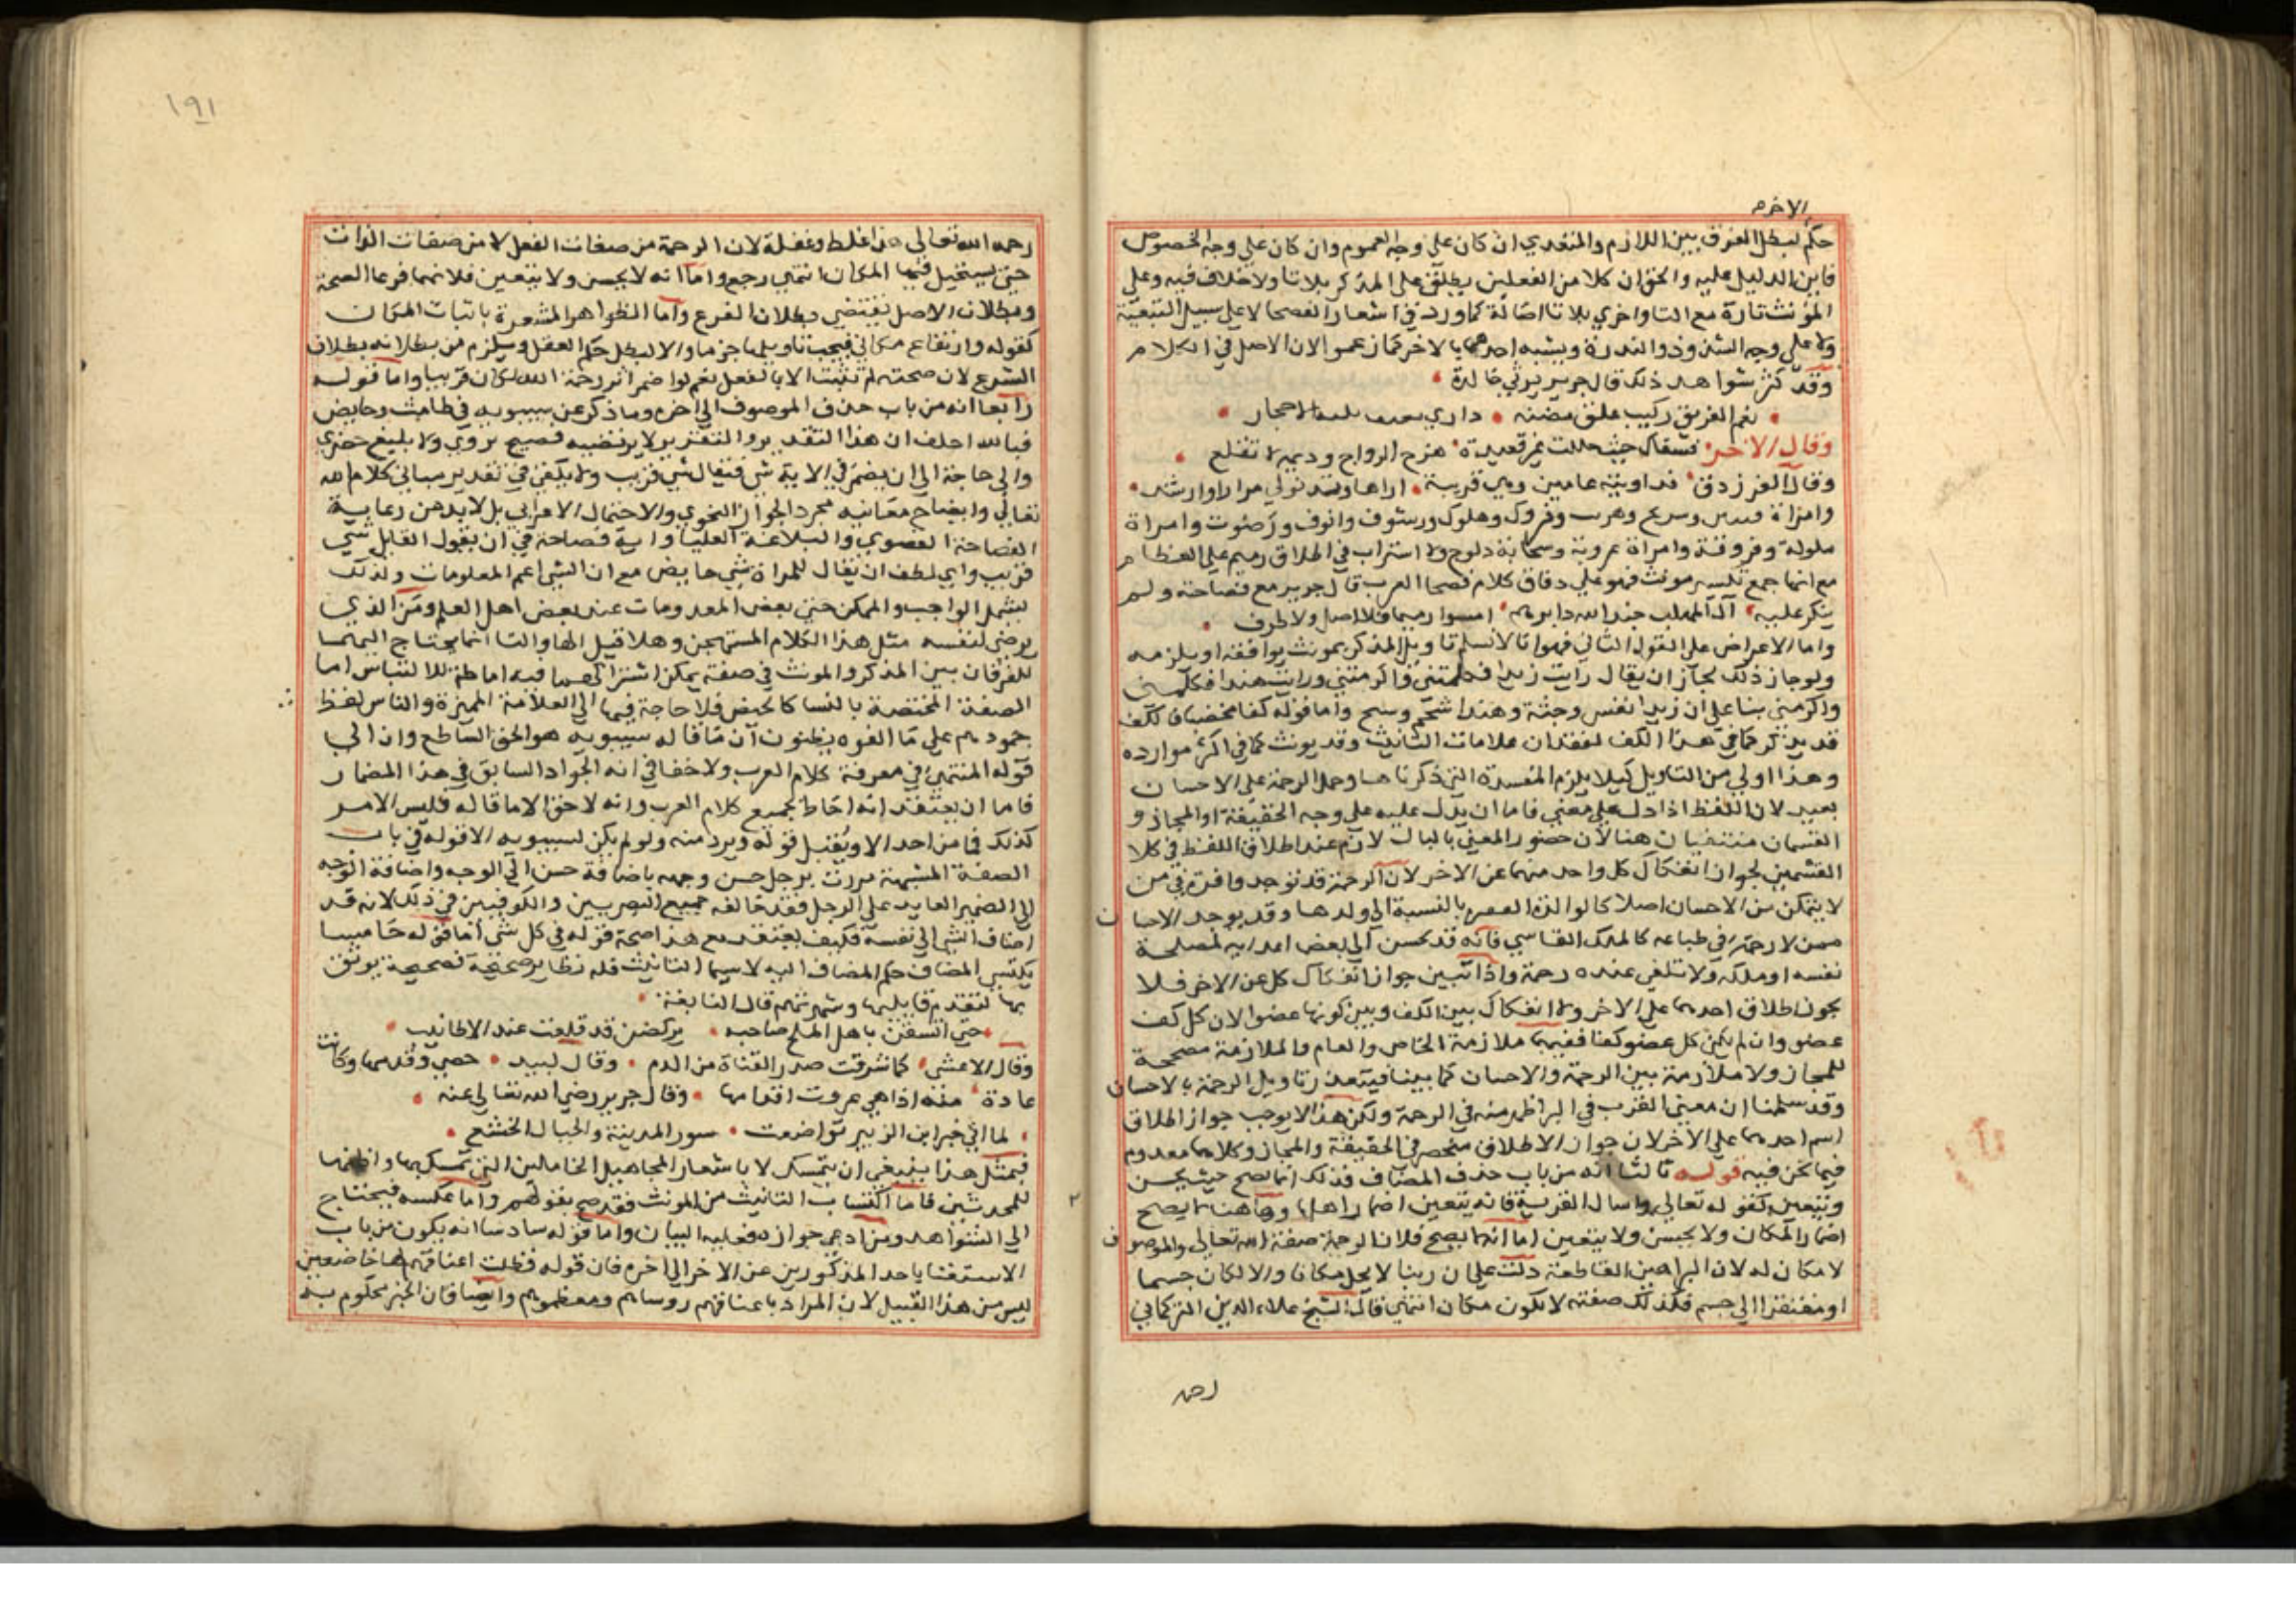 الاخر
حكم لبطل الفرق بين اللازم والمتعدي ان كان على وجه العموم وان كان على وجه الخصوص
فاين الدليل عليه والحق ان كلا من الفعلين يطلق على المذكر بلا تا ولا خلاف فيه وعلى
المؤنث تارة مع التا واخري بلا تا اصالة كما ورد في اشعار الفصحا لا على سبيل التبعية
ولا على وجه الشذوذ والندرة ويشبه احدهما بالاخر كما زعموا لان الاصل في الكلام
وقد كثر شواهد ذلك قال جرير يرثي خالدة
نعم القرين علق مضنه داري الاحجار
وقال الاخر فسقاك حيث حللت غير فقيدة هزج الرواح وديمة لا تقلع
وقال الفرزدق فداويته عامين وهي قريبة اراها وتدنو لي مرارا وارشد
وامراة وسريح وفروك وهلوك ورشوف وانوف ورصوف وامراة
ملولة وفروقة وامراة عروبة وسحابة دلوح ولا استراب في اطلاق رميم على العظام
مع انها جمع تكسير مونث فهو على وفاق كلام فصحا العرب قال جرير مع فصاحته ولم
ينكر عليه آل المهلب جذ الله دابرهم امسوا رميما فلا اصل ولا طرف
واما الاعراض على القول الثاني فهو انا لا نسلم تاويل المذكر بمونث يوافقه او يلزمه
ولو جاز ذلك لجاز ان يقال رايت زيدا فكلمتني واكرمتني ورايت هندا فكلمني
واكرمني بنا على ان زيدا نفس وجثة وهندا شخص وشبح واما قوله كفا مخضبا فالكف
قد يذكر كما في هذا الكف لفقدان علامات التانيث وقد يونث كما في اكثر موارده
وهذا اولى من التاويل كيلا يلزم المفسدة التي ذكرناها وحمل الرحمة على الاحسان
بعيد لان اللفظ اذا دل على معني فاما ان يدل عليه على وجه الحقيقة او المجاز و
القسمان منتفيان هنا لان حضور المعني بالبال لازم عند اطلاق اللفظ في كلا
القسمين لجواز انفكاك كل واحد منهما عن الاخر لان الرحمة قد توجد وافرة في من
لا يتمكن من الاحسان اصلا كالوالدة بالنسبة الى ولدها وقد يوجد الاحسان
ممن لا رحمة في طباعه كالملك القاسي فانه قد يحسن الى بعض اعدايه لمصلحة
نفسه او ملكه ولا تلفي عنده رحمة واذا تبين جواز انفكاك كل عن الاخر فلا
يجوز اطلاق احدهما على الاخر ولا انفكاك بين الكف وبين كونها عضوا لان كل كف
عضو وان لم يكن كل عضو كفا ففيهما ملازمة الخاص والعام والملازمة مصححة
للمجاز ولا ملازمة بين الرحمة والاحسان كما بينا فيتعذر تاويل الرحمة بالاحسان
وقد سلمنا ان معني القرب في البر اظهر منه في الرحمة ولكن هذا لا يوجب جواز اطلاق
اسم احدهما على الاخر لان جواز الاطلاق منحصر في الحقيقة والمجاز وكلاهما معدوم
فيما نحن فيه قوله ثالثا انه من باب حذف المضاف فذلك انما يصح حيث يحسن
ويتعين كقوله تعالى واسال القرية فانه يتعين اضمار اهلها وهاهنا لا يصح
اضمار المكان ولا يحسن ولا يتعين اما انه لا يصح فلان الرحمة صفة الله تعالى والموصوف
لا مكان له لان البراهين القاطعة دلت على ان ربنا لا يحل مكانا والا لكان جسما
او مفتقرا الى جسم فكذلك صفته لا تكون مكان انتهي قال الشيخ علاء الدين التركماني
رحمه
١٩١
رحمه الله تعالى هذا غلط وغفلة لان الرحمة من صفات الفعل لا من صفات الذات
حتى يستحيل فيها المكان انتهي رجع واما انه لا يحسن ولا يتعين فلانهما فرعا الصحة
وبطلان الاصل يقتضي بطلان الفرع واما الظواهر المشعرة باثبات المكان
كقوله وارتفاع مكاني فيجب تاويلها جزما والا لبطل حكم العقل ويلزم من بطلانه بطلان
الشرع لان صحته لم تثبت الا بالعقل نعم لو اضمر اثر رحمة الله لكان قريبا واما قوله
رابعا انه من باب حذف الموصوف الى اخره وما ذكر عن سيبويه في طامث وحايض
فبالله احلف ان هذا التقدير والتقرير لا يرتضيه فصيح بدوي ولا بليغ حضري
والى حاجة الى ان يضمر في الاية شي فيقال شي قريب ولا يكفي في تقدير مباني كلام الله
تعالى وايضاح معانيه مجرد الجواز النحوي والاحتمال الاعرابي بل لا بد من رعاية
الفصاحة القصوي والبلاغة العليا واية فصاحة في ان يقول القايل شي
قريب واي لطف ان يقال للمراة شي حايض مع ان الشي اعم المعلومات ولذلك
يشمل الواجب والممكن حتى بعض المعدومات عند بعض اهل العلم ومن الذي
يرضى لنفسه مثل هذا الكلام المستهجن وهلا قيل الها والتا انما يحتاج اليهما
للفرقان بين المذكر والمونث في صفة يمكن اشتراكهما فيه اماطة للالتباس اما
الصفة المختصة بالنسا كالحيض فلا حاجة فيها الى العلامة المميزة والناس لفظ
جمودهم على ما الفوه يظنون ان ما قاله سيبويه هو الحق الساطع وان الى
قوله المنتهي في معرفة كلام العرب ولا خفا في انه الجواد السابق في هذا المضمار
فاما ان يعتقد انه احاط بجميع كلام العرب وانه لا حق الا ما قاله فليس الامر
كذلك فما من احد الا ويقبل قوله ويرد منه ولو لم يكن لسيبويه الا قوله في باب
الصفة المشبهة مررت برجل حسن وجهه باضافة حسن الى الوجه واضافة الوجه
الى الضمير العايد على الرجل فقد خالفه جميع البصريين والكوفيين في ذلك لانه قد
اضاف الشي الى نفسه فكيف يعتقد مع هذا صحة قوله في كل شي اما قوله خامسا
يكتسي المضاف حكم المضاف اليه لا سيما التانيث فله نظاير صحيحة فصيحة يوثق
بها لتقدم قايليها وشهرتهم قال النابغة
حتى استغثن باهل الملح ضاحية يركضن قد قلقت عند الاطانيب
وقال الاعشى كما شرقت صدر القناة من الدم وقال لبيد فمضى وقدمها وكانت
عادة منه اذا هي عردت اقدامها وقال جرير رضي الله تعالى عنه
لما اتى خبر ابن الزبير تواضعت سور المدينة والجبال الخشع
فبمثل هذا ينبغي ان يتمسك لا باشعار المجاهيل الخاملين التي تمسك بها واظنها
للمحدثين فاما اكتساب التانيث من المونث فقد صح بقولهم واما عكسه فيحتاج
الى الشواهد ومن ادعى جوازه فعليه البيان واما قوله سادسا انه يكون من باب
الاستغنا باحد المذكورين عن الاخر الى اخره فان قوله فظلت اعناقهم لها خاضعين
ليس من هذا القبيل لان المراد باعناقهم روساهم ومعظموهم وايضا فان الخبر محكوم به